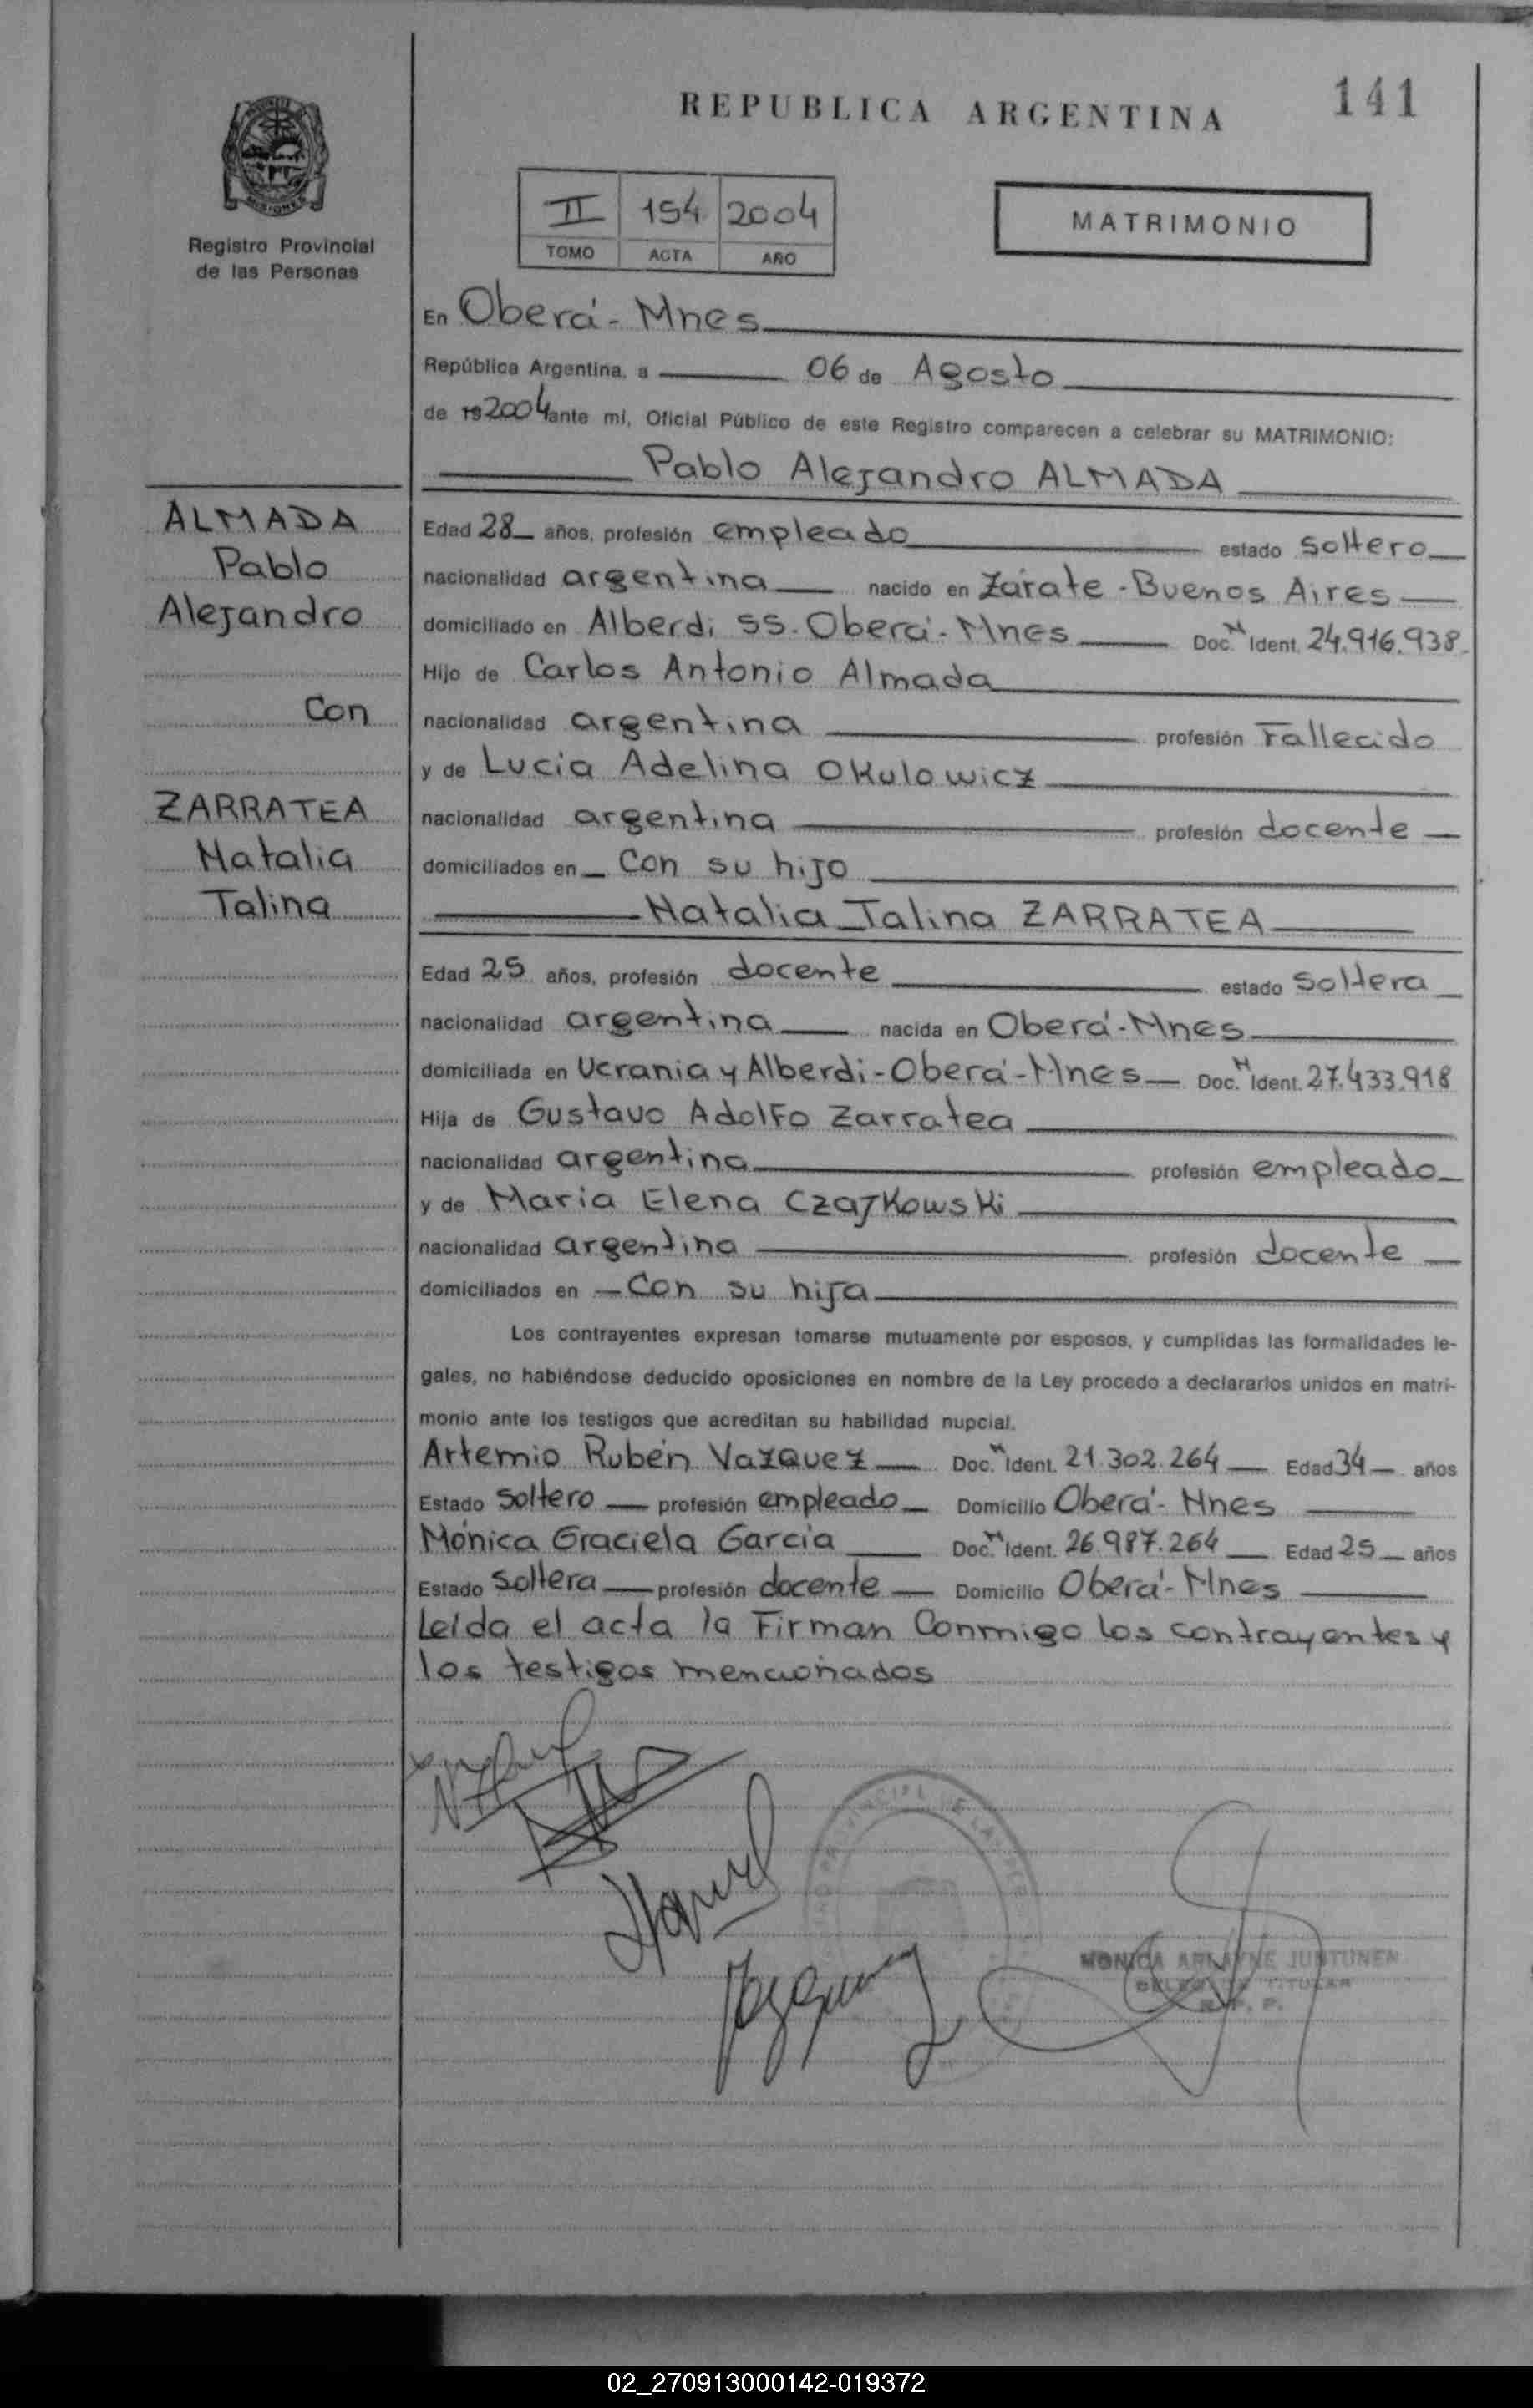 REPUBLICA ARGENTINA
141
MISIONES
Registro Provincial
de las Personas
II 154 2004
TOMO ACTA AÑO
MATRIMONIO
En Oberá - Mnes
República Argentina, a 06 de Agosto
de 19 2004 ante mi, Oficial Público de este Registro comparecen a celebrar su MATRIMONIO:
Pablo Alejandro ALMADA
ALMADA
Pablo
Alejandro
Con
ZARRATEA
Natalia
Talina
Edad 28 años, profesión empleado estado soltero
nacionalidad argentina nacido en Zárate - Buenos Aires
domiciliado en Alberdi 55. Oberá - Mnes Doc. N Ident. 24.916.938
Hijo de Carlos Antonio Almada
nacionalidad argentina profesión Fallecido
y de Lucia Adelina Okulowicz
nacionalidad argentina profesión docente
domiciliados en Con su hijo
Natalia Talina ZARRATEA
Edad 25 años, profesión docente estado soltera
nacionalidad argentina nacida en Oberá - Mnes
domiciliada en Ucrania y Alberdi - Oberá - Mnes Doc. N Ident. 27.433.918
Hija de Gustavo Adolfo Zarratea
nacionalidad argentina profesión empleado
y de Maria Elena Czajkowski
nacionalidad argentina profesión docente
domiciliados en Con su hija
Los contrayentes expresan tomarse mutuamente por esposos, y cumplidas las formalidades le-
gales, no habiéndose deducido oposiciones en nombre de la Ley procedo a declararlos unidos en matri-
monio ante los testigos que acreditan su habilidad nupcial.
Artemio Rubén Vazquez Doc. N Ident. 21.302.264 Edad 34 años
Estado soltero profesión empleado Domicilio Oberá - Mnes
Mónica Graciela Garcia Doc. N Ident. 26.987.264 Edad 25 años
Estado soltera profesión docente Domicilio Oberá - Mnes
Leída el acta la Firman Conmigo los contrayentes y
los testigos mencionados
MONICA ARLAYNE JUSTUNEN
TITULAR
R. P. P.
02_270913000142-019372